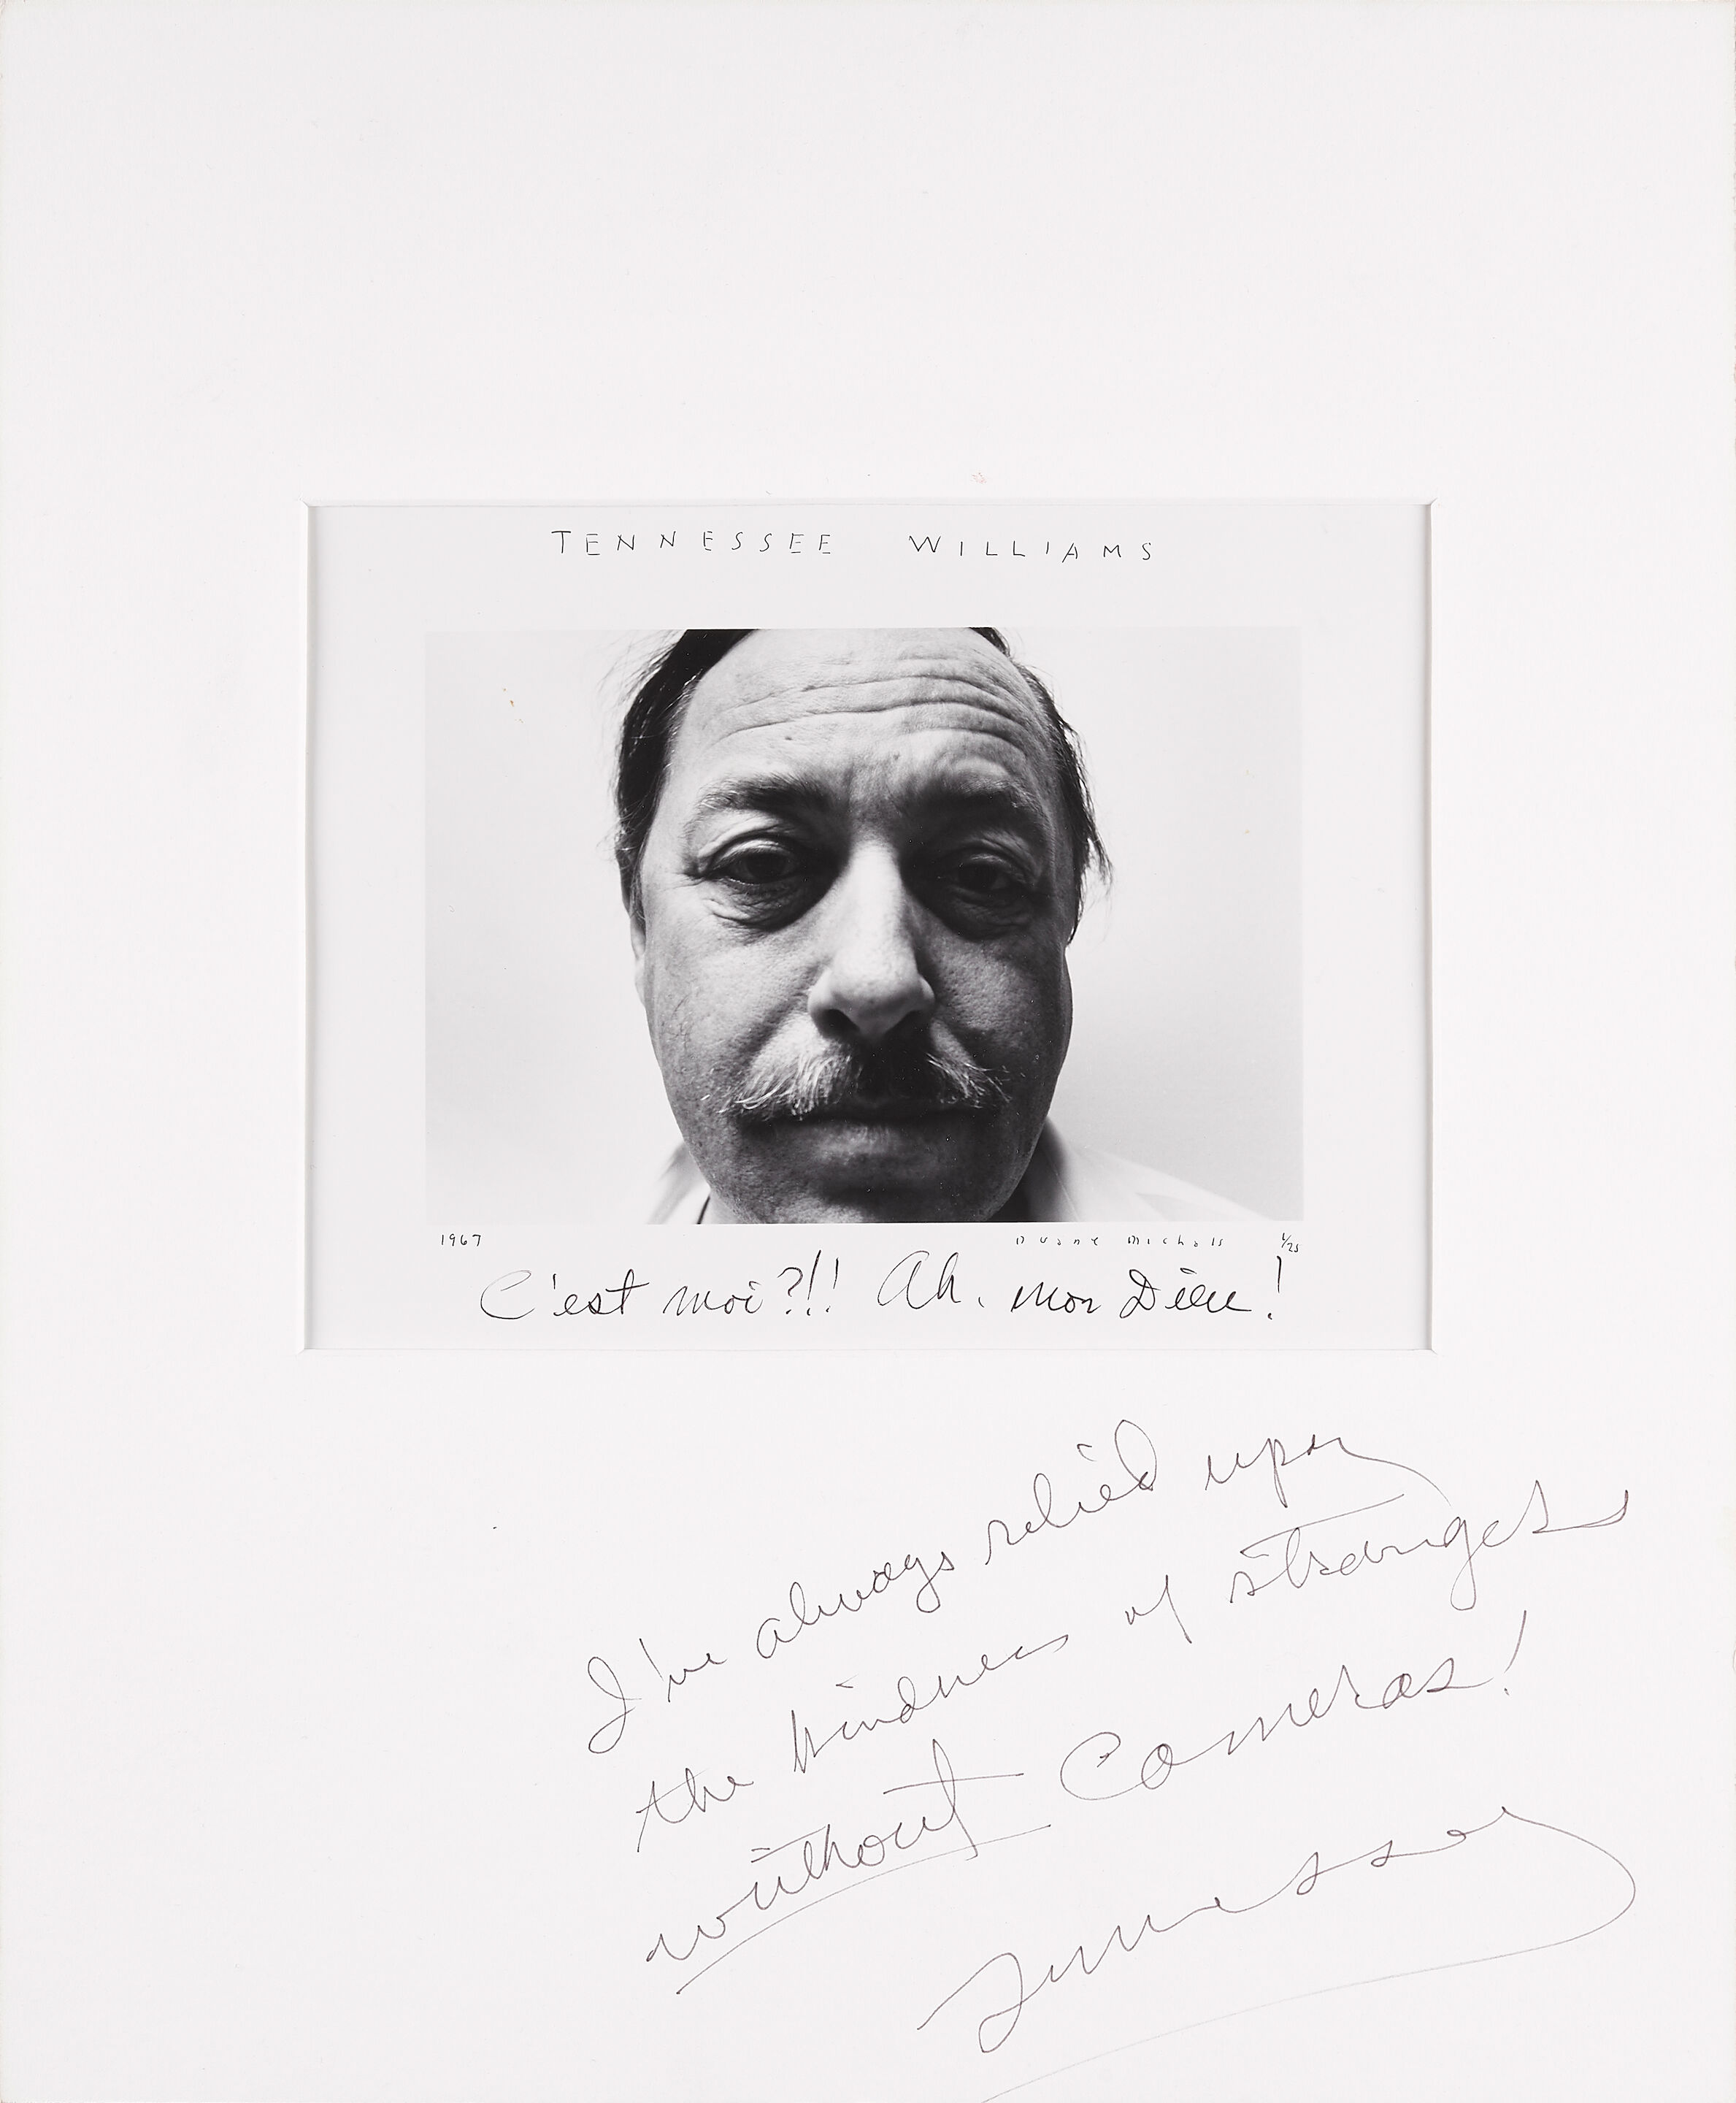 TENNESSEE WILLIAMS
1967 Duane Michals 4/25
C'est moi?!! Ah, mon Dieu!
I've always relied upon
the kindness of strangers
without Cameras!
Tennessee